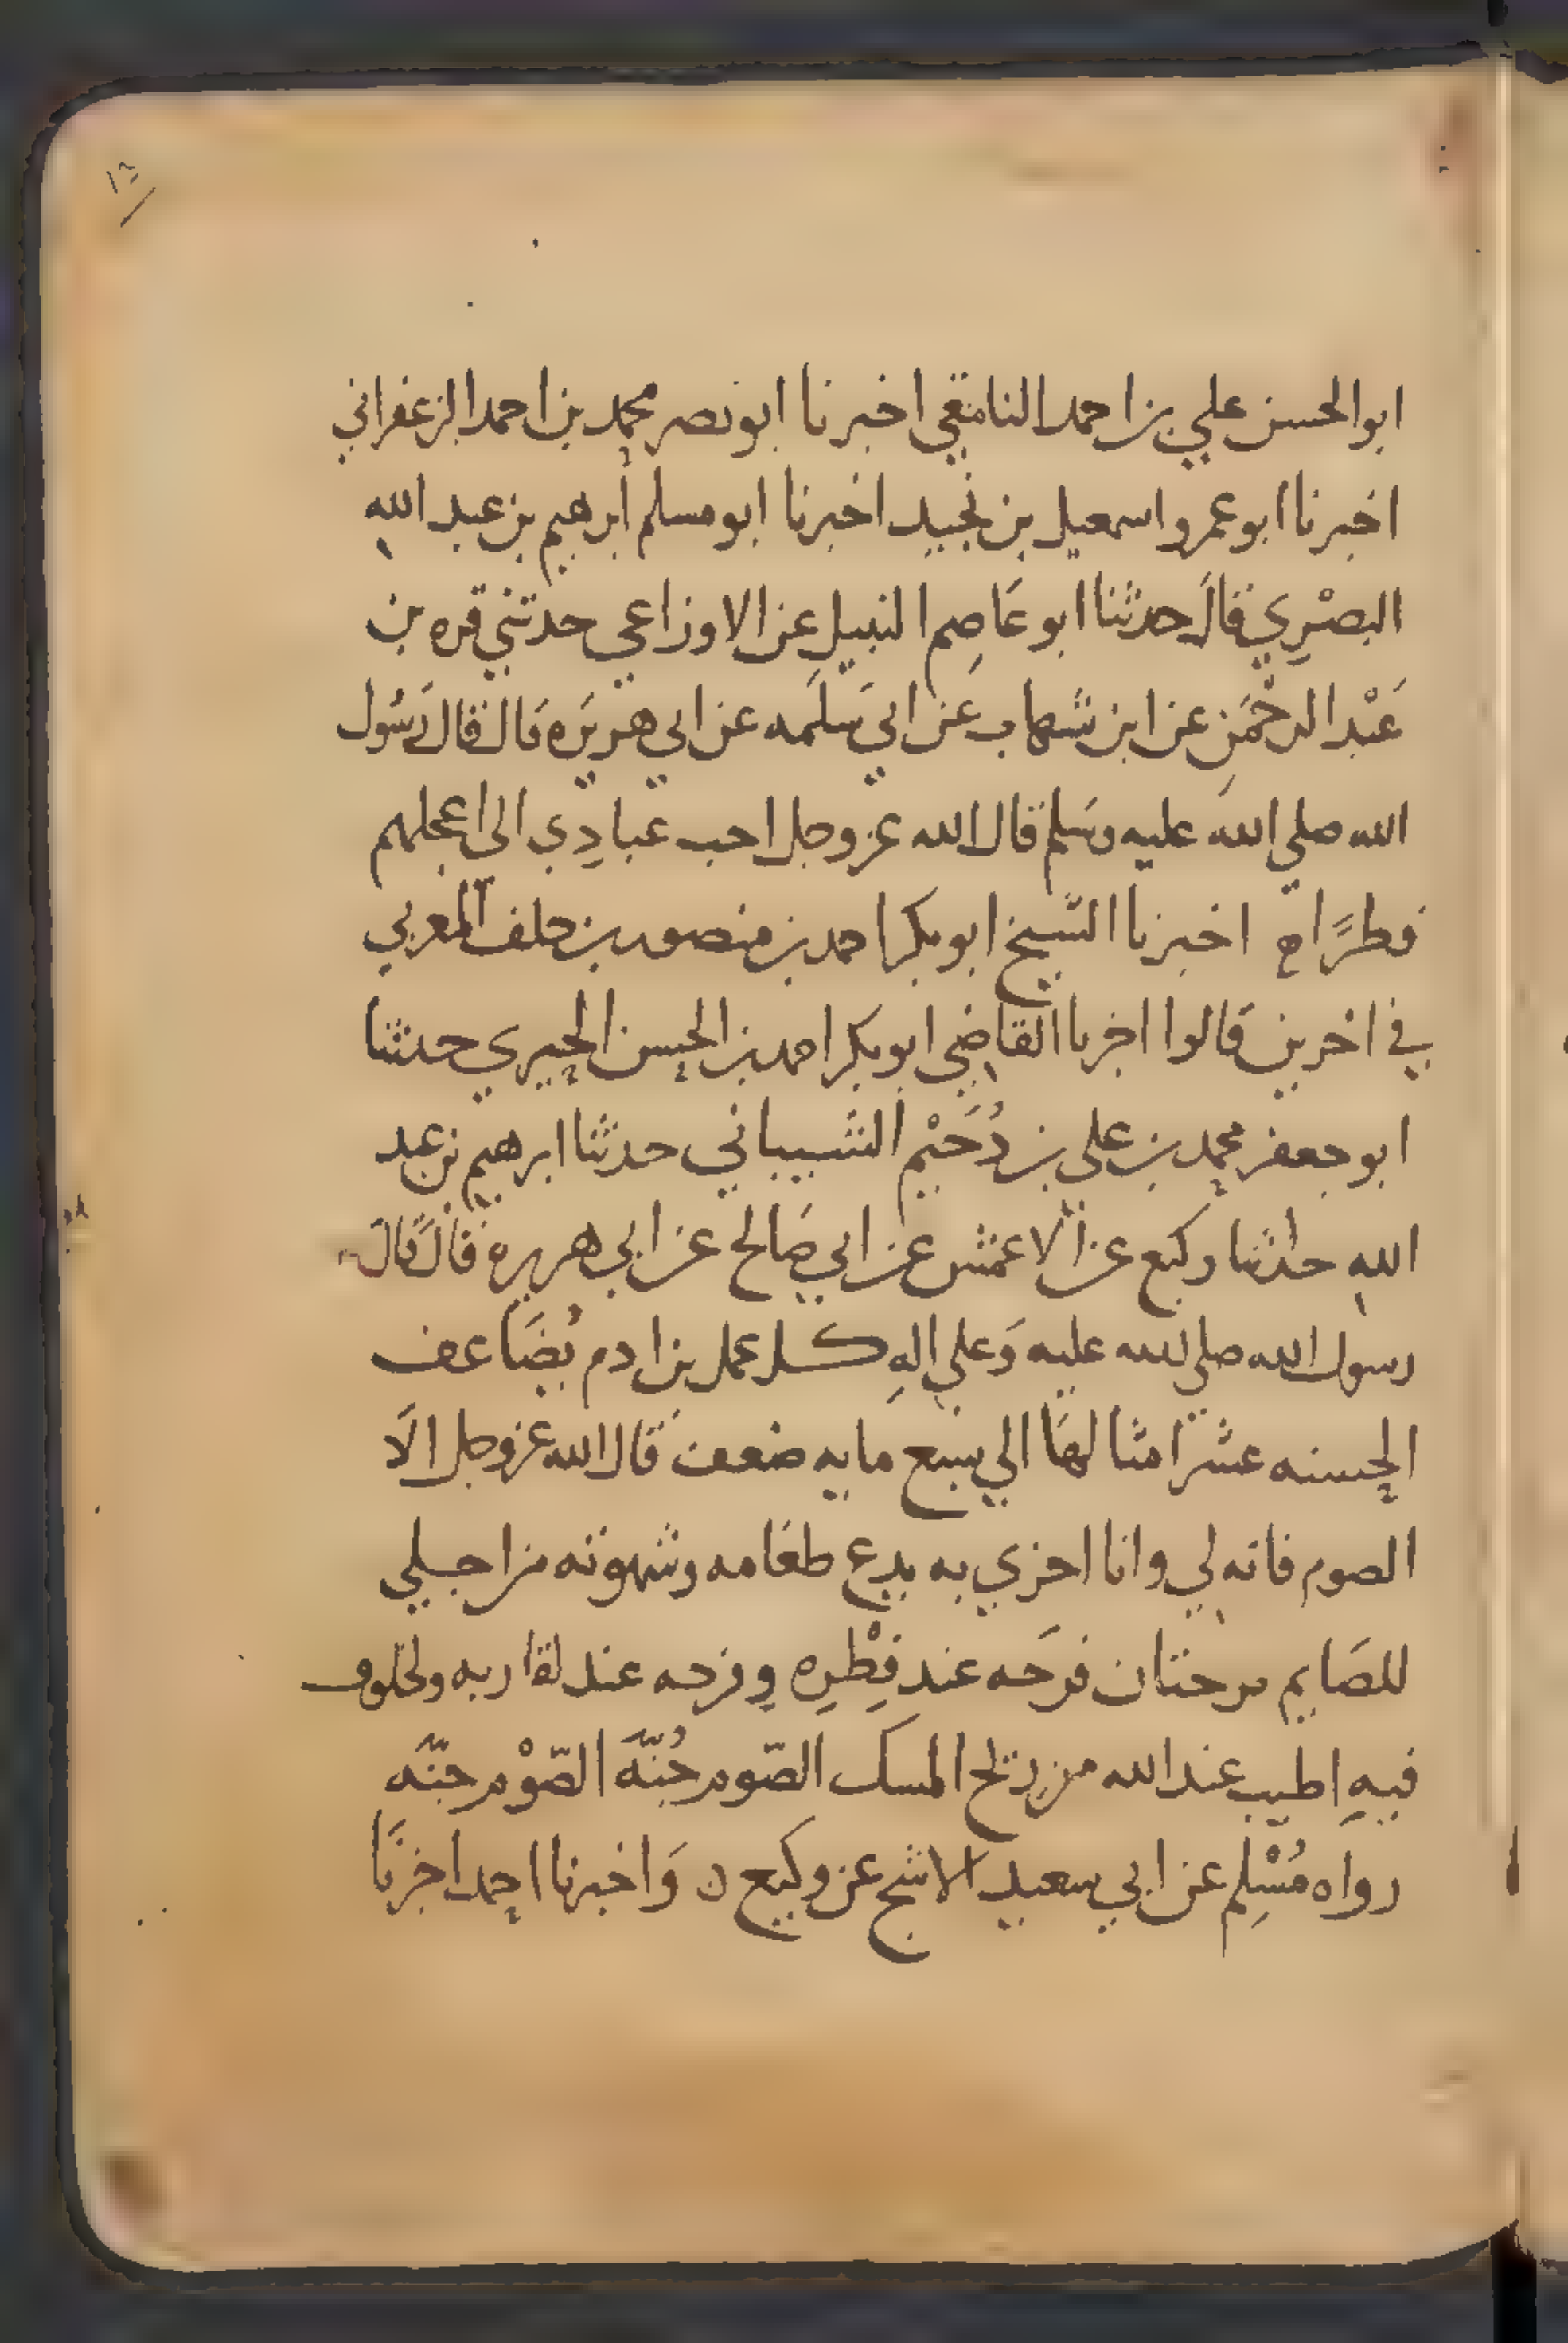 ١٦
ابو الحسن علي بن احمد النامقي اخبرنا ابو نصر محمد بن احمد الزعفراني
اخبرنا ابو عمرو اسمعيل بن نجيد اخبرنا ابو مسلم ابرهيم بن عبد الله
البصْرِي قالَ حدثنا ابو عَاصِم النبيل عن الاوزاعي حدثني قره بن
عَبْد الرحْمَنِ عن ابن شهاب عَن ابي سَلَمه عن ابي هريَره قال قال رَسُول
الله صلي الله عليه وسَلم قال الله عز وجل احب عبادِي الي اعجلهم
فطرًا ح اخبرنا الشيخ ابو بكر احمد بن منصور بن خلف المغربي
في اخرين قالوا اخبرنا القاضي ابو بكر احمد بن الحسن الحيري حدثنا
ابو جعفر محمد بن علي بن دُحَيْم الشيباني حدثنا ابرهيم بن عبد
اللهِ حدثنا وكيع عن الاعمش عن ابي صَالح عن ابي هريره قالَ قالَ
رسول الله صلي الله عليه وَعلي الهِ كل عمل بن ادم يُضَاعف
الحسنه عشر امثالهَا الي سبع مايه ضعف قال الله عز وجل الاَ
الصوم فانه لي وانا اجزي به يدع طعَامه وشهوته من اجلي
للصَايم فرحتان فرحَه عند فِطْرِه وفرحه عند لقا ربه ولخلوف
فيهِ اطيب عند الله من ريح المسك الصّوم جُنّه الصّوْم جنّه
روَاه مُسْلِم عن ابي سعيد الاشج عن وكيع ن وَاخبرنا احمد اخبرنَا